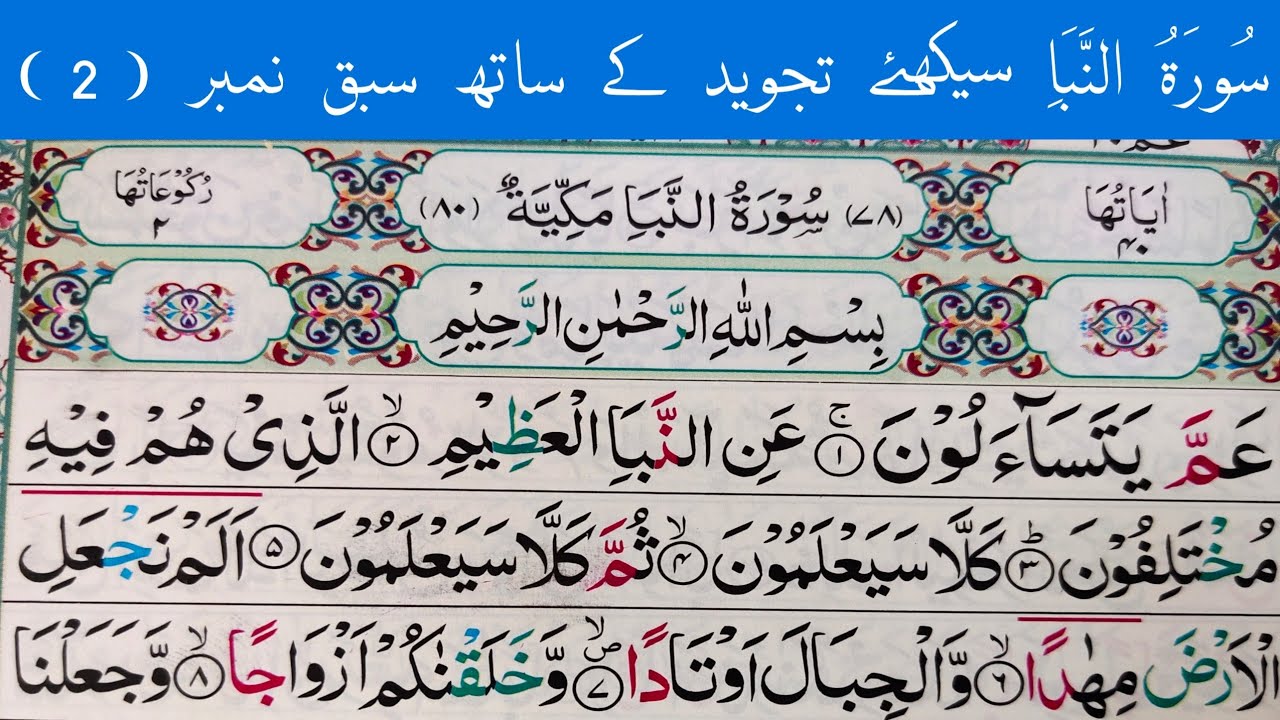 سُورَةُ النَّبَاِ سیکھئے تجوید کے ساتھ سبق نمبر ( 2 )
اٰيَاتُهَا ۴۰
(۷۸) سُوْرَةُ النَّبَاِ مَكِّيَّةٌ (۸۰)
رُكُوْعَاتُهَا ۲
بِسْمِ اللّٰهِ الرَّحْمٰنِ الرَّحِيْمِ
عَمَّ يَتَسَآءَلُوْنَ ۚ ۱ عَنِ النَّبَاِ الْعَظِيْمِ ۙ ۲ الَّذِىْ هُمْ فِيْهِ
مُخْتَلِفُوْنَ ؕ ۳ كَلَّا سَيَعْلَمُوْنَ ۙ ۴ ثُمَّ كَلَّا سَيَعْلَمُوْنَ ۵ اَلَمْ نَجْعَلِ
الْاَرْضَ مِهٰدًا ۙ ۶ وَّالْجِبَالَ اَوْتَادًا ۙ ص ۷ وَّخَلَقْنٰكُمْ اَزْوَاجًا ۙ ۸ وَّجَعَلْنَا